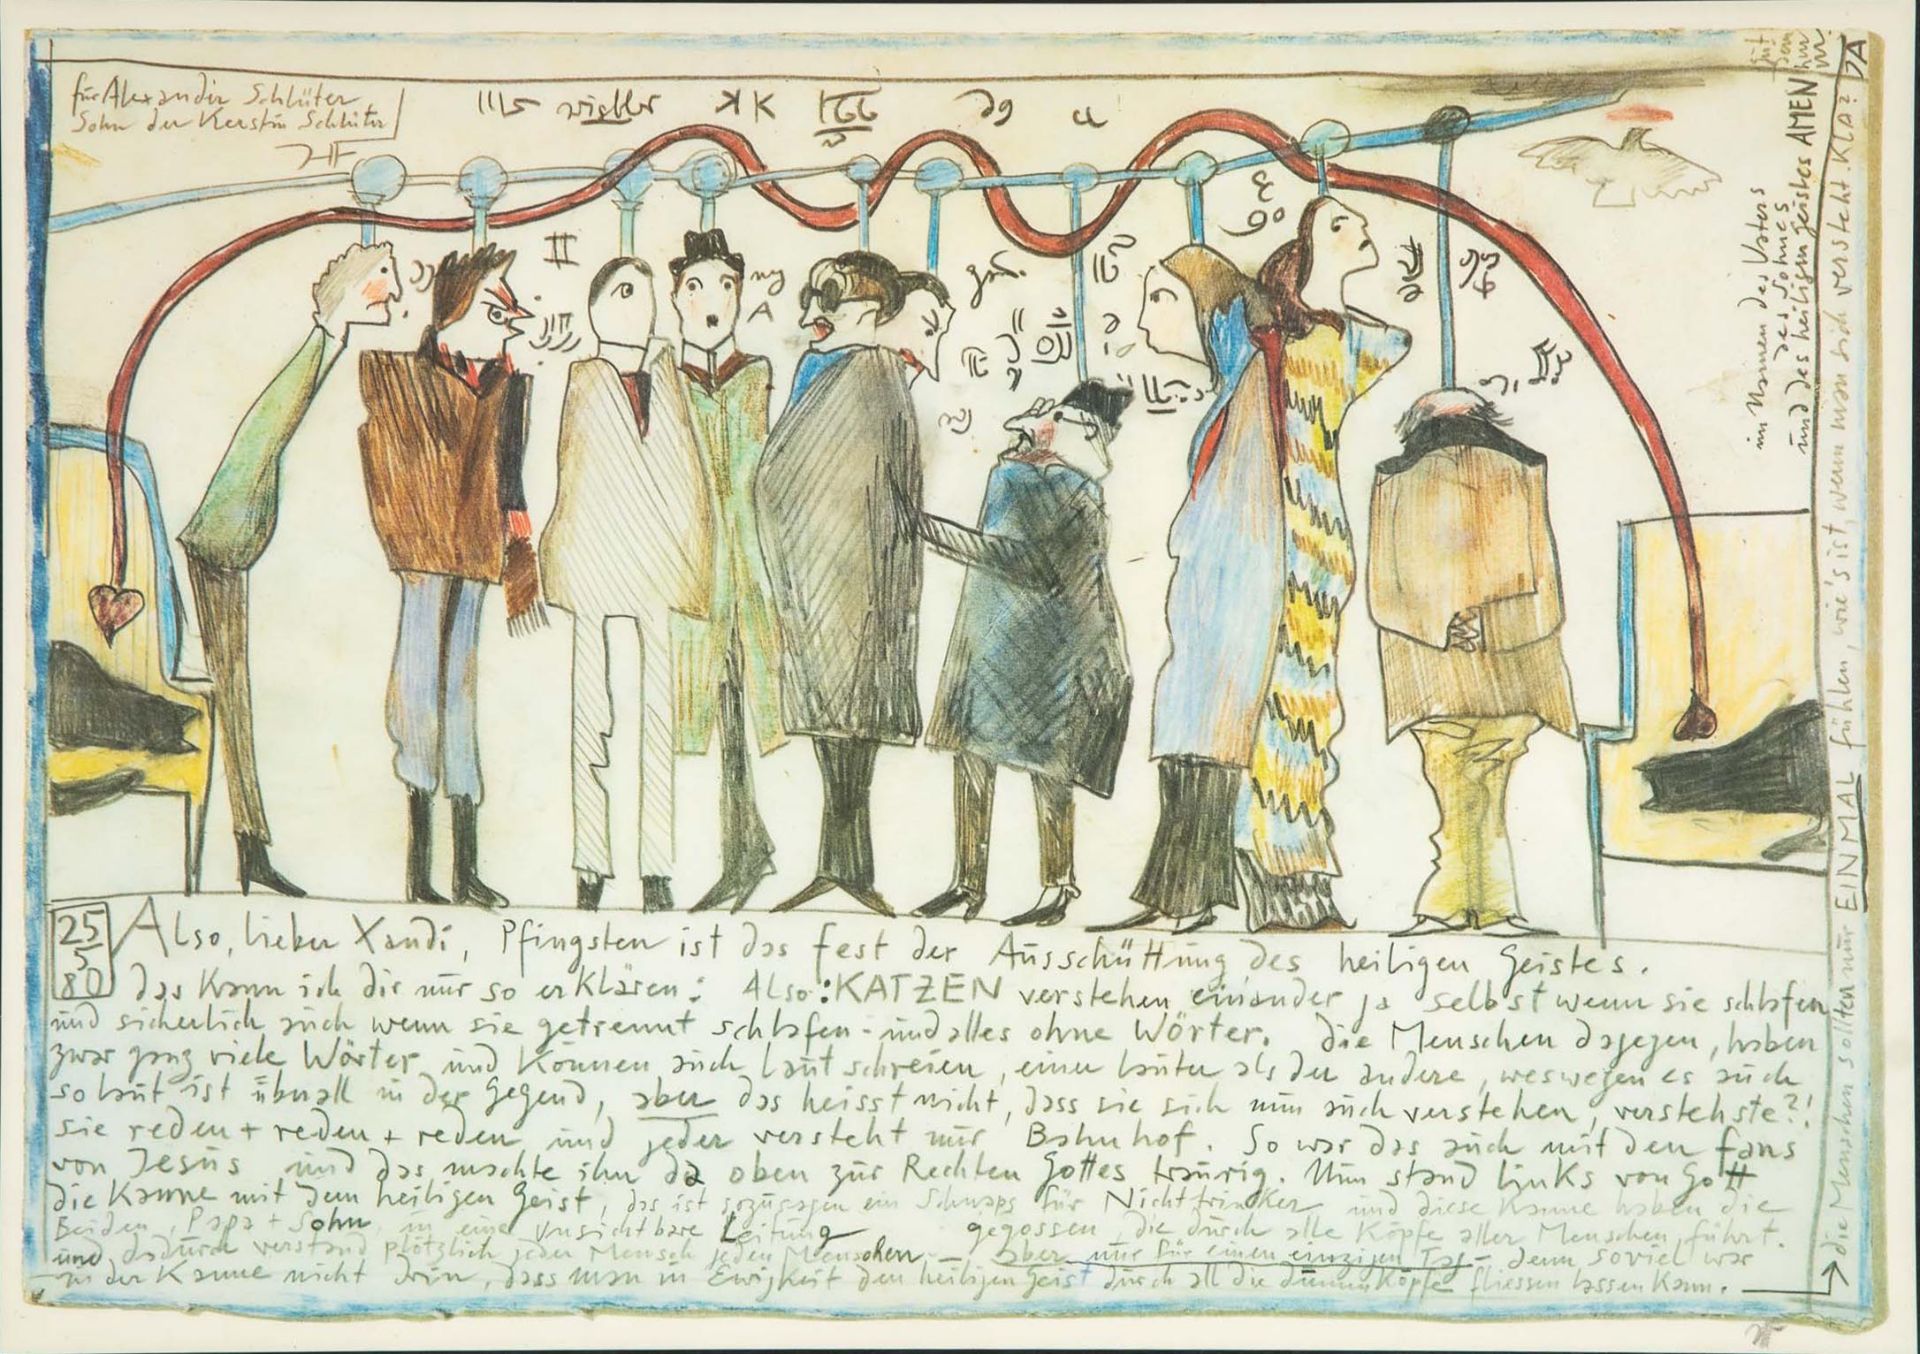 für Alexander Schlüter
Sohn der Kerstin Schlüter
25
5
80
Also, lieber Xandi, Pfingsten ist das Fest der Ausschüttung des heiligen Geistes.
das kann ich dir nur so erklären: Also: KATZEN verstehen einander ja selbst wenn sie schlafen
und sicherlich auch wenn sie getrennt schlafen - und alles ohne Wörter. die Menschen dagegen, haben
zwar ganz viele Wörter und können auch laut schreien, einer lauter als der andere, weswegen es auch
so laut ist überall in der Gegend, aber das heisst nicht, dass sie sich nun auch verstehen, verstehste?!
sie reden + reden + reden und jeder versteht nur Bahnhof. So war das auch mit den Fans
von Jesus und das machte ihn da oben zur Rechten Gottes traurig. Nun stand links von Gott
die Kanne mit dem heiligen Geist, das ist sozusagen ein Schnaps für Nichttrinker und diese Kanne haben die
Beiden, Papa + Sohn in eine unsichtbare Leitung gegossen die durch alle Köpfe aller Menschen führt.
und dadurch verstand plötzlich jeder Mensch jeden Menschen - aber nur für einen einzigen Tag - denn soviel war
in der Kanne nicht drin, dass man in Ewigkeit den heiligen Geist durch all die dummen Köpfe fliessen lassen kann.
→ die Menschen sollten nur EINMAL fühlen, wie's ist, wenn man sich versteht. Kla? JA
im Namen des Vaters
des Sohnes
und des heiligen Geistes AMEN